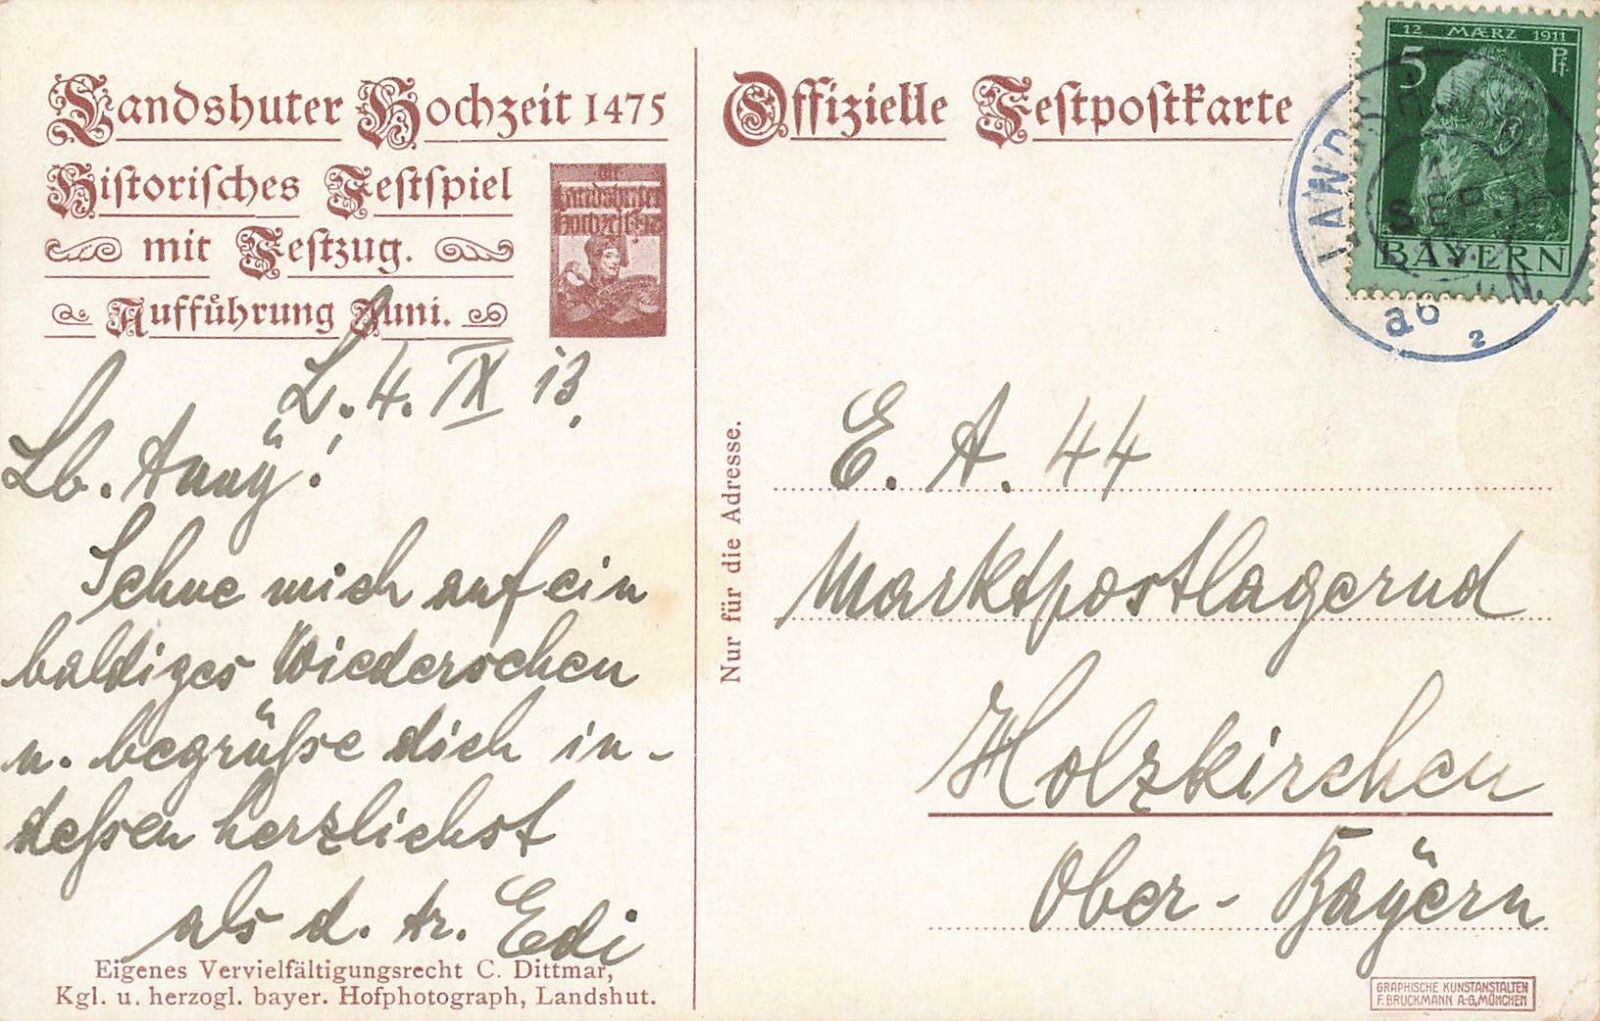 Landshuter Hochzeit 1475
Historisches Festspiel
mit Festzug.
Aufführung Juni.
die
Landshuter
Hochzeit 1475
L. 4. IX 13.
Lb. Anny̎!
Sehne mich auf ein
baldiges Wiedersehen
u. begrüße dich in-
dessen herzlichst
als d. tr. Edi
Eigenes Vervielfältigungsrecht C. Dittmar,
Kgl. u. herzogl. bayer. Hofphotograph, Landshut.
Nur für die Adresse.
Offizielle Festpostkarte
12 MÆRZ 1911
5 Pf
BAYERN
SEP.
E. A. 44
Marktpostlagernd
Holzkirchen
Ober-Baÿern
GRAPHISCHE KUNSTANSTALTEN
F. BRUCKMANN A-G, MÜNCHEN